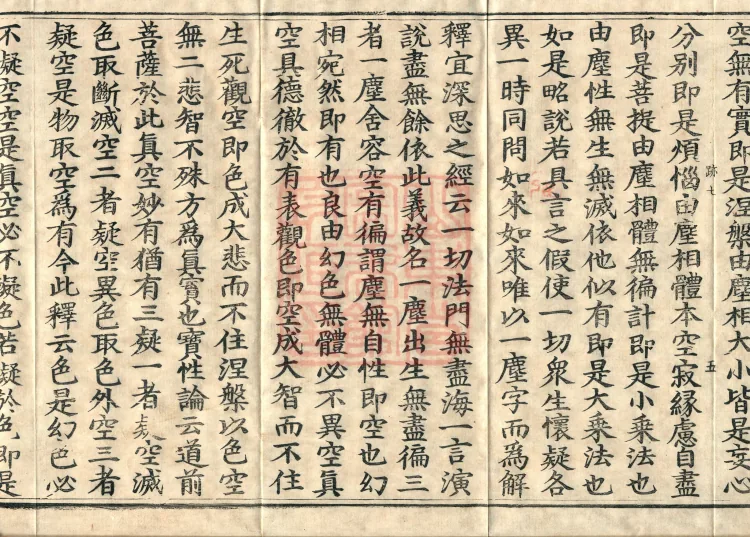 空無有實即是涅槃由塵相大小皆是妄心
分別即是煩惱由塵相體本空寂緣慮自盡
跡七
五
即是菩提由塵相體無徧計即是小乘法也
由塵性無生無滅依他似有即是大乘法也
如是略說若具言之假使一切衆生懷疑各
異一時同問如來如來唯以一塵字而爲解
釋宜深思之經云一切法門無盡海一言演
說盡無餘依此義故名一塵出生無盡徧三
者一塵舍容空有徧謂塵無自性即空也幻
相宛然即有也良由幻色無體必不異空真
空具德徹於有表觀色即空成大智而不住
生死觀空即色成大悲而不住涅槃以色空
無二悲智不殊方爲眞實也寶性論云道前
菩薩於此眞空妙有猶有三疑一者疑空滅
色取斷滅空二者疑空異色取色外空三者
疑空是物取空爲有今此釋云色是幻色必
不礙空空是眞空必不礙色若礙於色即是